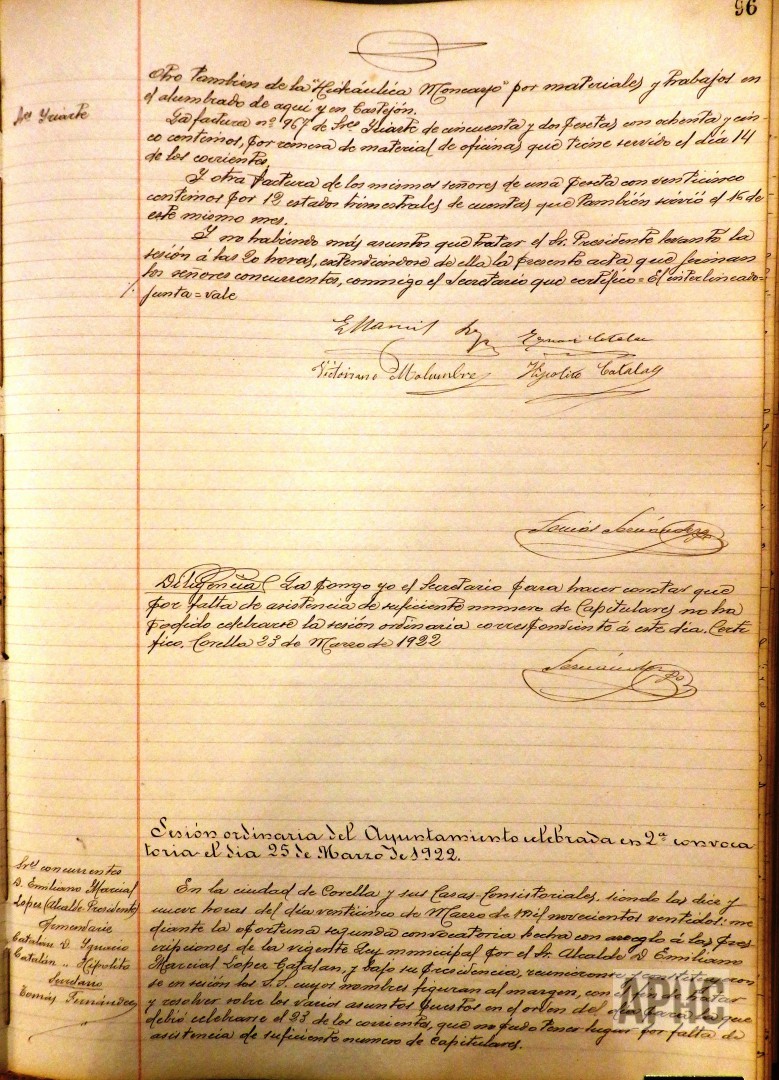 96
Otro tambien de la "Hidráulica Moncayo" por materiales y trabajos en
el alumbrado de aqui y en Castejón.
Sres Yriarte
La factura nº 967 de Sres Yriarte de cincuenta y dos pesetas con ochenta y cin-
co centimos, por remesa de material de oficinas que tiene servido el dia 14
de los corrientes
Y otra factura de los mismos señores de una peseta con venticinco
centimos por 12 estados trimestrales de cuentas que también sirvió el 16 de
este mismo mes.
Y no habiendo más asuntos que tratar el Sr. Presidente levantó la
sesión á las 20 horas, extendiendose de ella la presente acta que firman
los señores concurrentes, conmigo el Secretario que certifico = El interlineado =
junta = vale
Victoriano Malumbre Hipolito Catalan
Tomás Fernández
Diligencia La pongo yo el Secretario para hacer constar que
por falta de asistencia de suficiente numero de Capitulares no ha
podido celebrarse la sesión ordinaria correspondiente á este dia. Certi-
fico. Corella 23 de Marzo de 1922
Fernández
Sesión ordinaria del Ayuntamiento celebrada en 2ª convoca
toria el dia 25 de Marzo de 1922.
Sres concurrentes
D. Emiliano Marcial
Lopez (Alcalde Presidente)
Catalán D. Ygnacio
Catalán " Hipolito
Secretario
Tomás Fernández
En la ciudad de Corella y sus Casas-Consistoriales, siendo las diez y
nueve horas del dia venticinco de Marzo de mil novecientos ventidos: me
diante la oportuna segunda convocatoria hecha con arreglo á las pres
cripciones de la vigente Ley municipal por el Sr. Alcalde D. Emiliano
Marcial Lopez Catalan, y bajo su presidencia, reunieronse
se en sesión los S.S. cuyos nombres figuran al margen, con
y resolver sobre los varios asuntos puestos en el orden del dia para la que
debió celebrarse el 23 de los corrientes, que no pudo tener lugar por falta de
asistencia de suficiente numero de Capitulares.
APHC